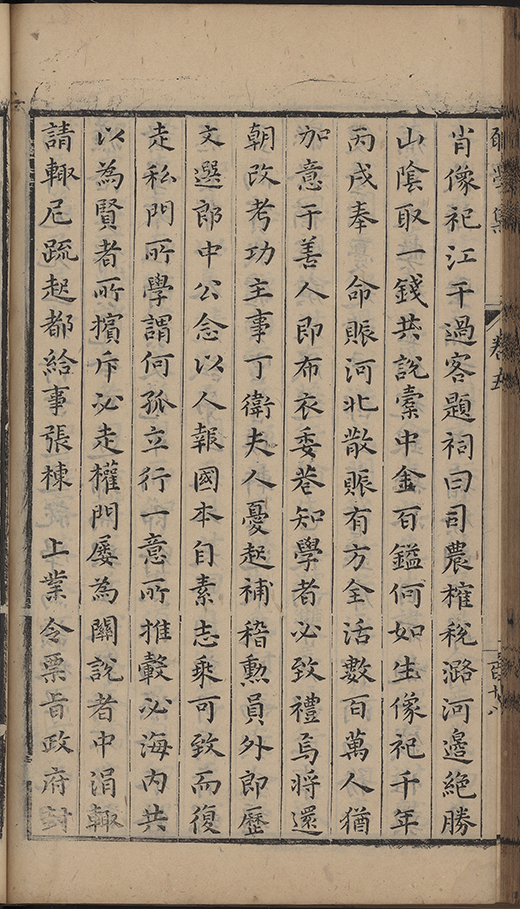 肖像祀江干過客題祠曰司農榷稅潞河邊絶勝
山陰取一錢共說橐中金百鎰何如生像祀千年
丙戌奉　命賑河北散賑有方全活數百萬人猶
加意于善人即布衣委巷知學者必致禮焉將還
朝改考功主事丁衛夫人憂起補稽勲員外郎歷
文選郎中公念以人報國本自素志乘可致而復
走私門所學謂何孤立行一意所推轂必海内共
以為賢者所擯斥必走權門屡為關說者中涓輙
請輙尼疏起都給事張棟　上業令票旨政府封
集　卷五